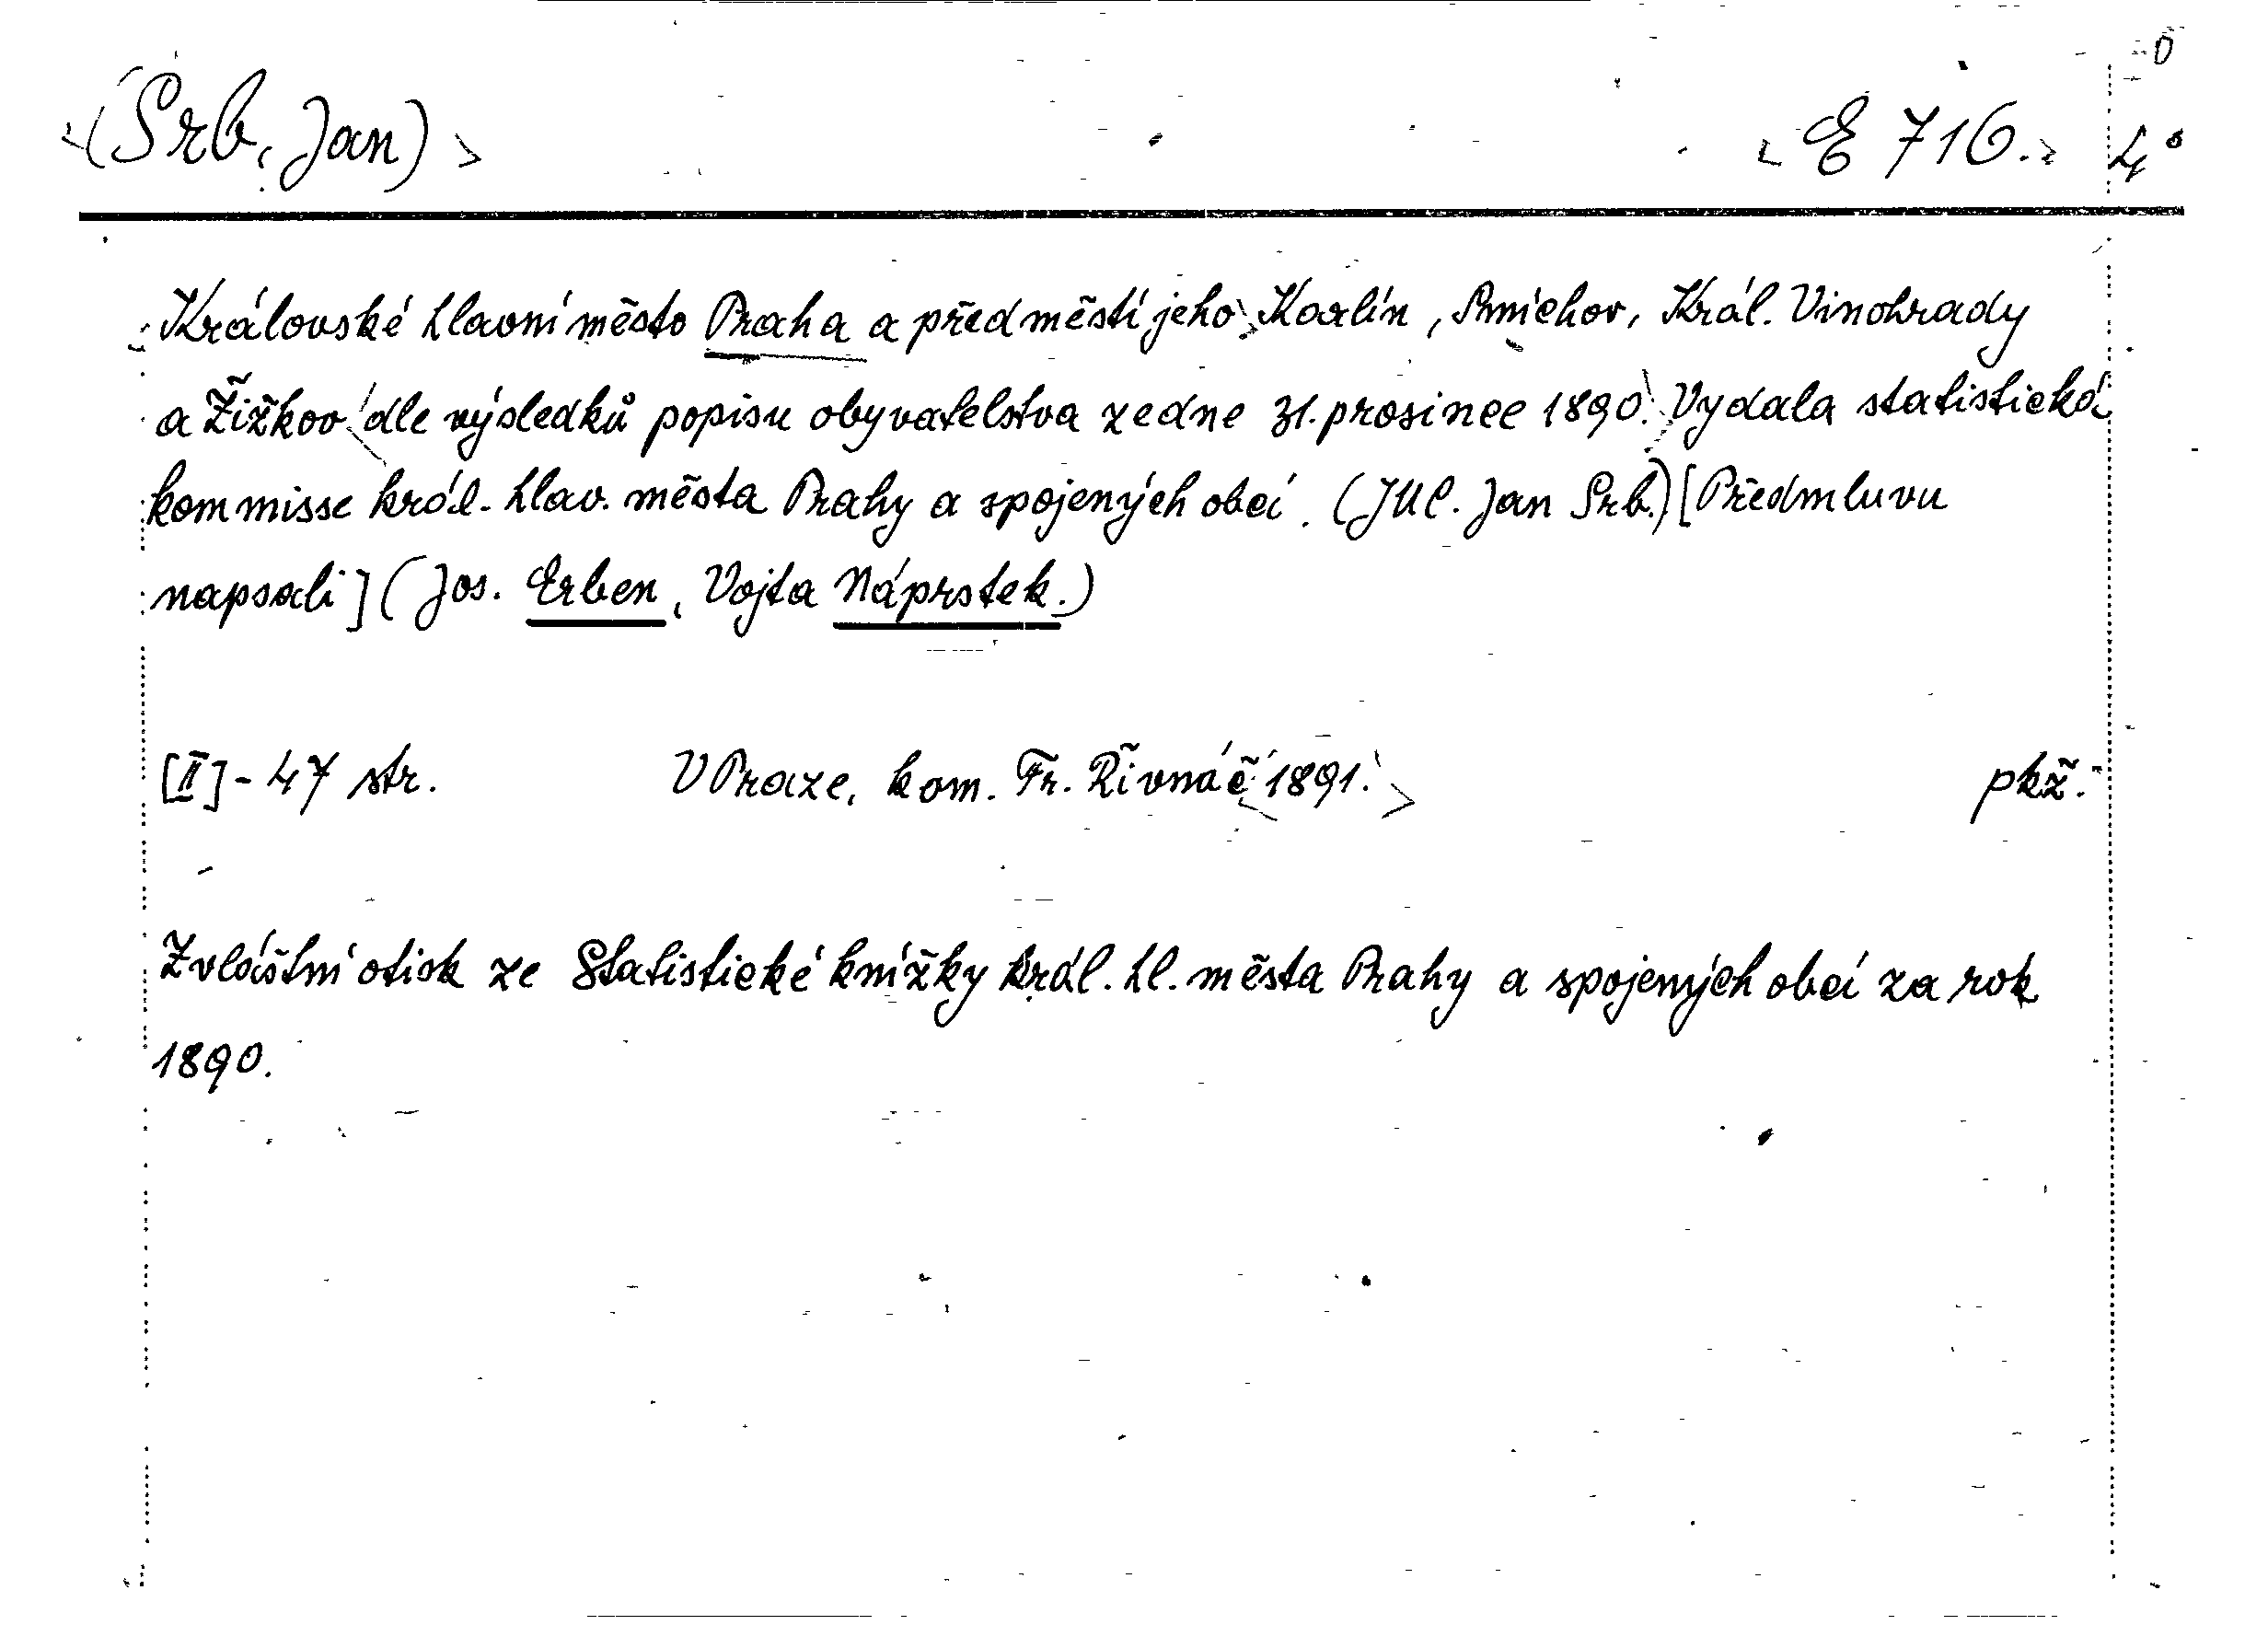 (Srb, Jan) E 716. 4°
Královské hlavní město Praha a předměstí jeho Karlín, Smíchov, Král. Vinohrady
a Žižkov dle výsledků popisu obyvatelstva ze dne 31. prosince 1890. Vydala statistická
kommisse král. hlav. města Prahy a spojených obcí. (JUC. Jan Srb.) [Předmluvu
napsali] (Jos. Erben, Vojta Náprstek.)
[II] - 47 str. V Praze, kom. Fr. Řivnáč 1891. pkž.
Zvláštní otisk ze Statistické knížky král. hl. města Prahy a spojených obcí za rok
1890.